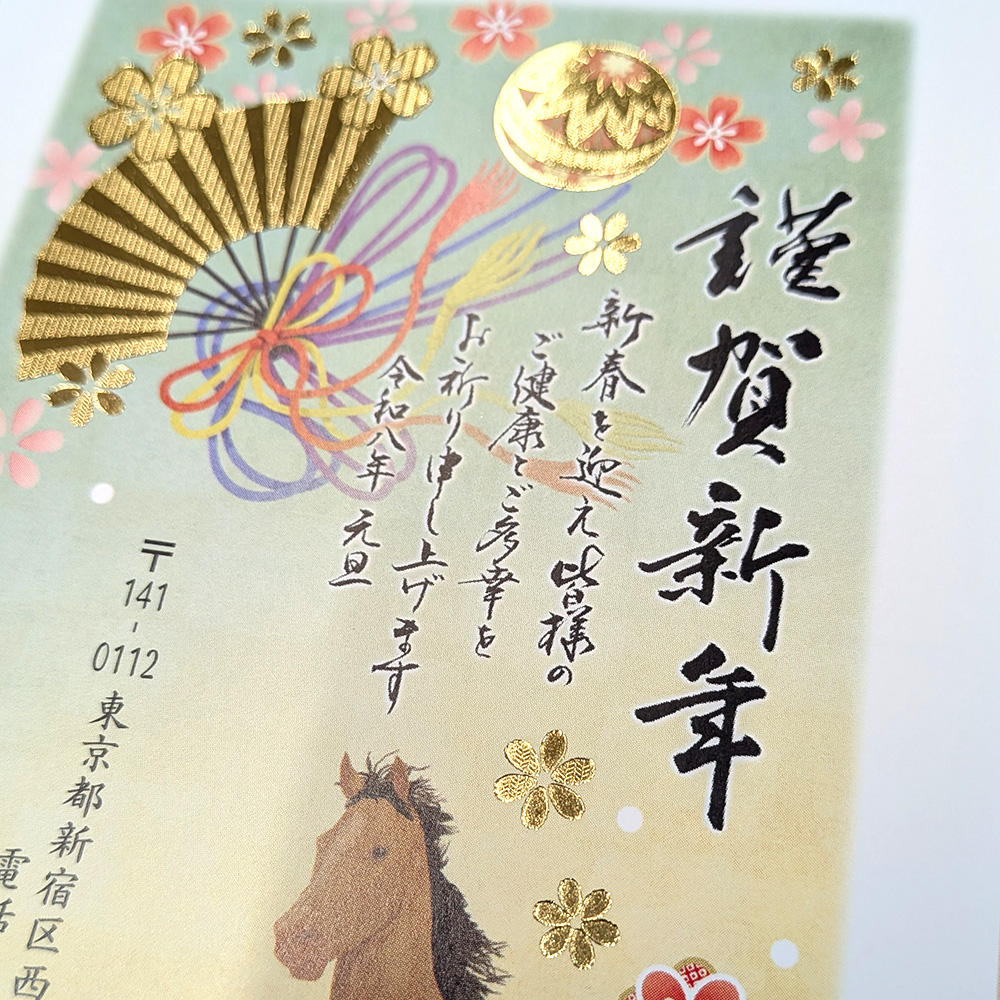 謹賀新年
新春を迎え皆様の
ご健康とご多幸を
お祈り申し上げます
令和八年 元旦
〒141-0112 東京都新宿区西
電話